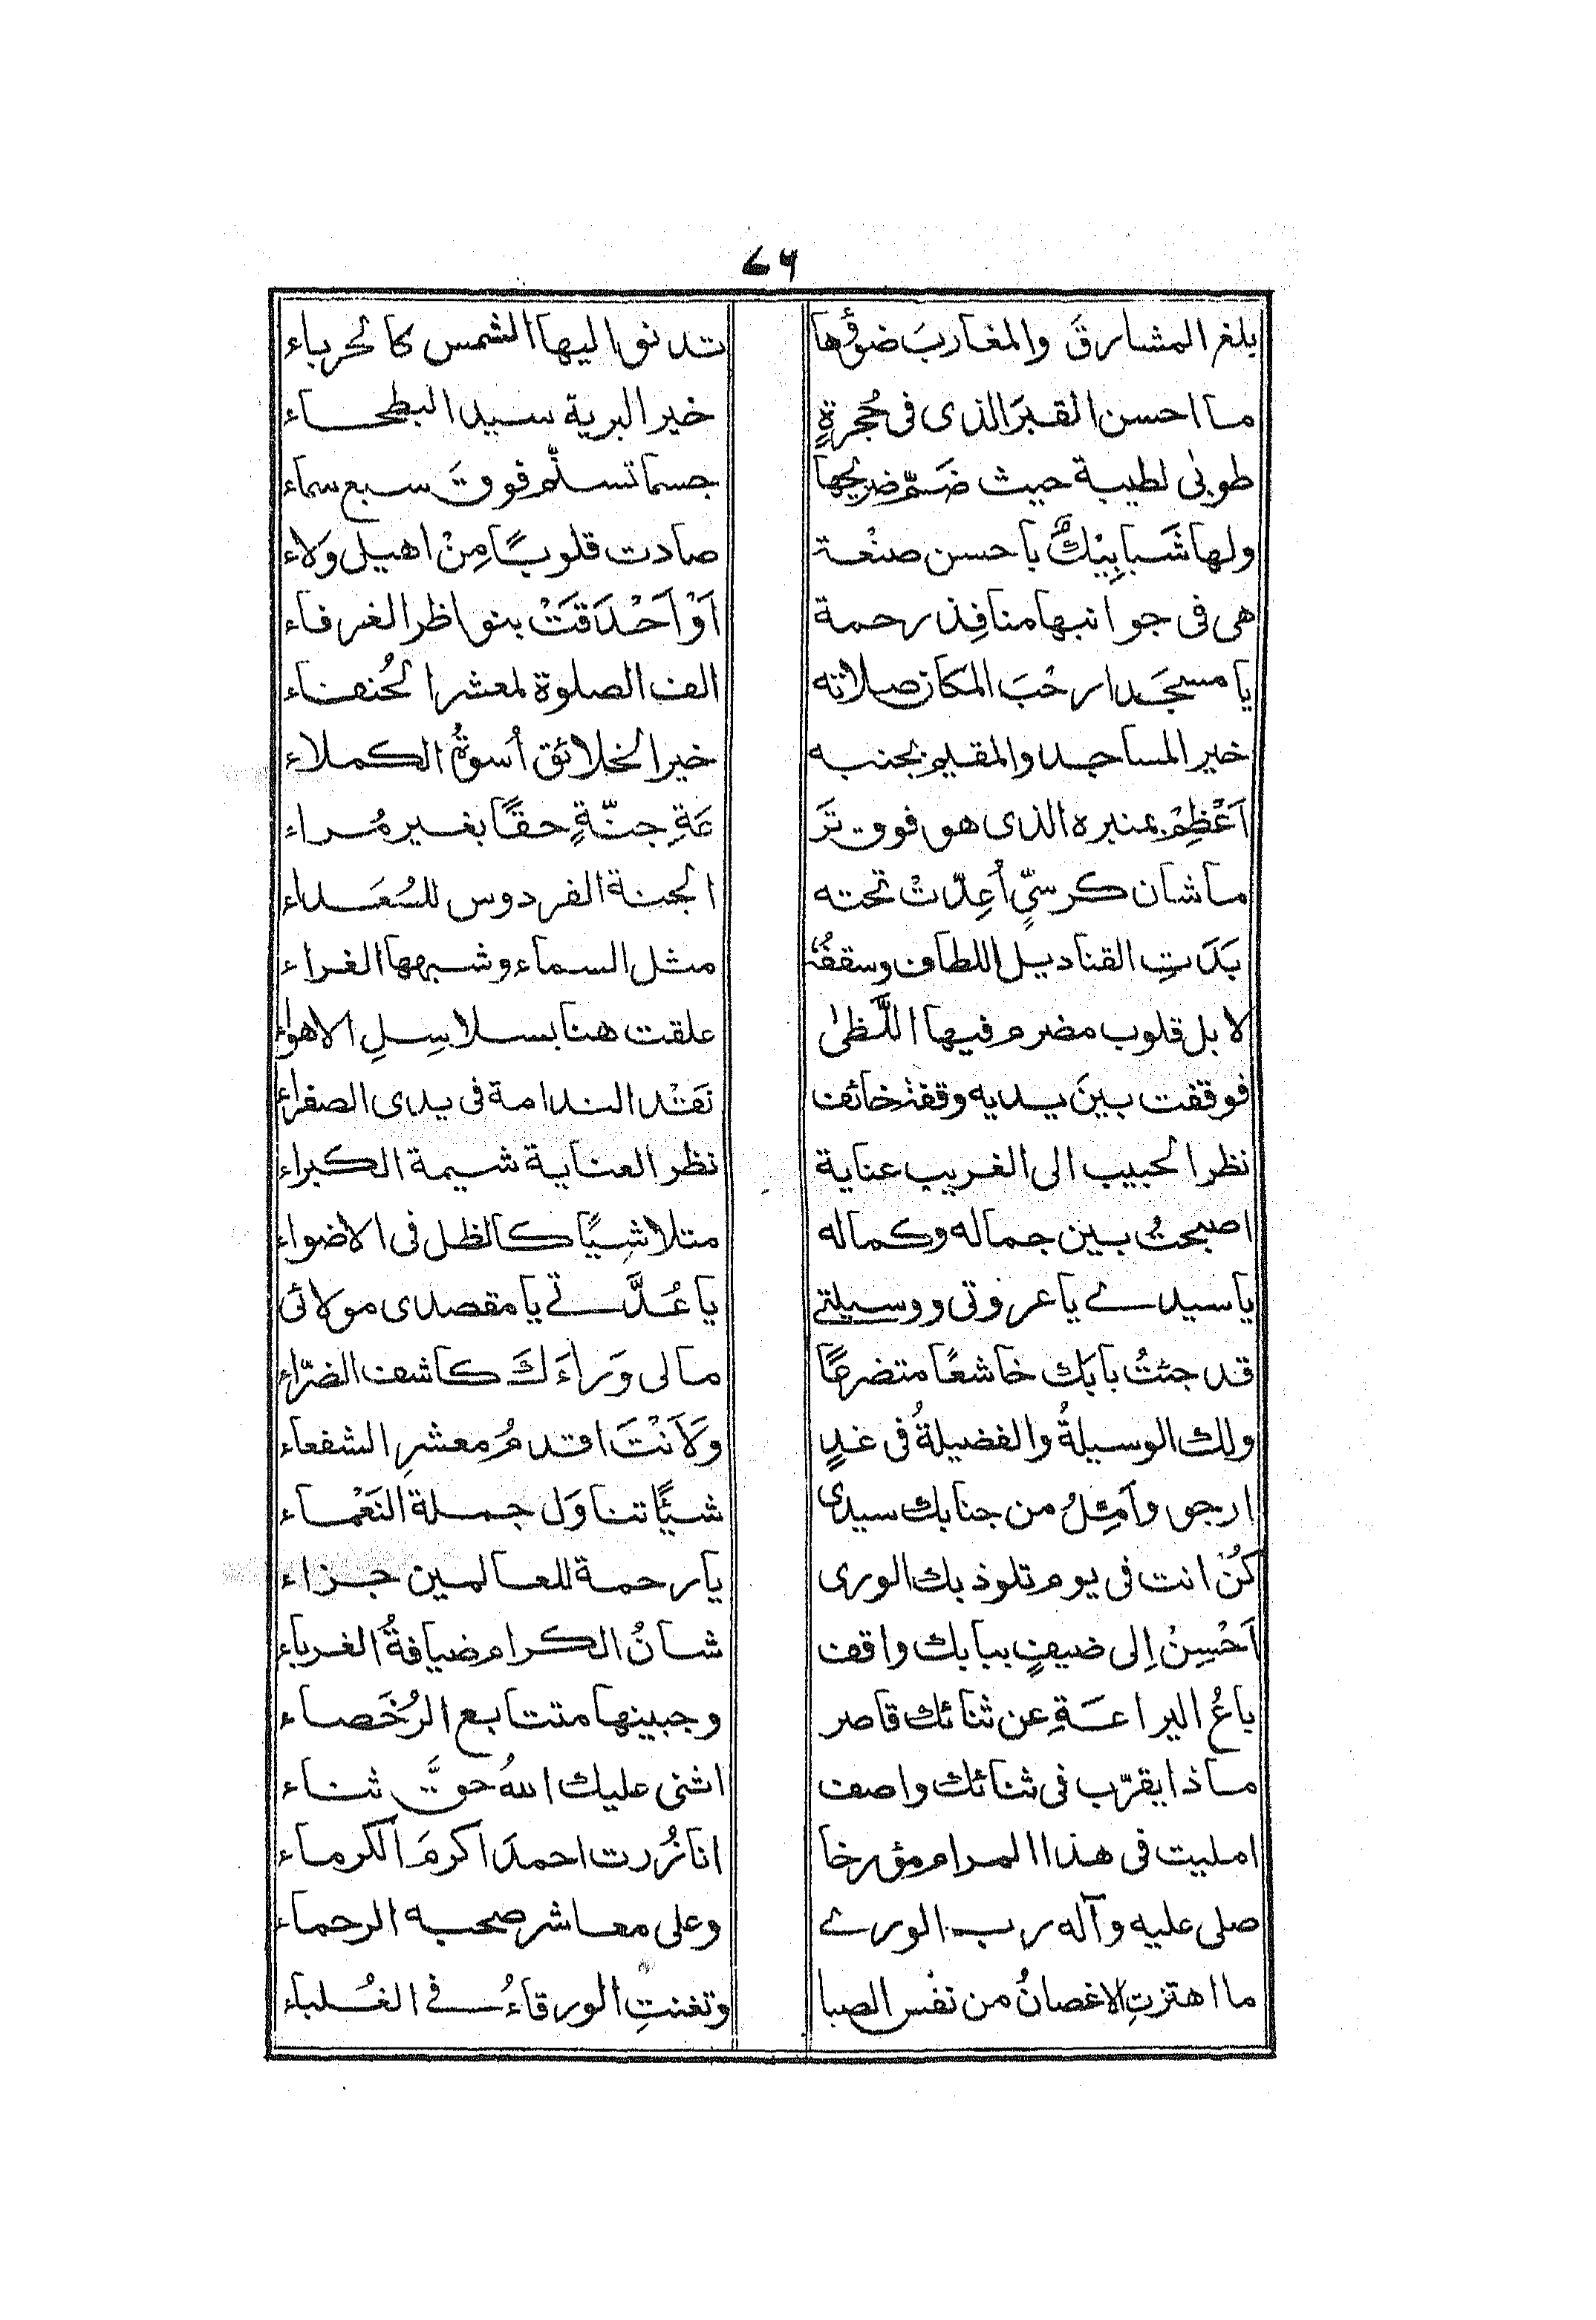 ٧٦
يلغ المشارقَ والمغاربَ ضوؤُها تدنو اليها الشمس كالحرباء
ما احسن القبرَ الذى فى حُجرةٍ خير البرية سيد البطحاء
طوبىٰ لطيبة حيث ضَمّ ضريحها جسما تسلَّم فوقَ سبع سماء
ولها شَبابِيْكٌ باحسن صنْعة صادت قلوبًا مِنْ اهيل وَلاء
هى فى جوانبها منافِذ رحمة اَوْ اَحْدَقَتْ بنواظر الغرفاء
يا مسجَدا رحْبَ المكان صلاته الف الصلوة لمعشر الحُنفاء
خير المساجد والمقيم بجنبه خير الخلائق اُسوةُ الكملاء
اَعْظِمْ بمنبره الذى هو فوق تَرَ عَةِ جنّةٍ حقًا بغير مُراء
ما شان كرسّيٍ اُعِدّتْ تحته الجنة الفردوس للسُعَداء
بَدَتِ القناديل اللطاف وسقفُهٗ مثل السماء وشبهها الغراء
لا بل قلوب مضرم فيها اللَّظىٰ علقت هنا بسلاسِلِ الاهواء
فوقفت بينَ يديه وقفة خائف نَقْد الندامة فى يدى الصفراء
نظر الحبيب الى الغريب عناية نظر العناية شيمة الكبراء
اصبحتُ بين جماله وكماله متلاشِيًا كالظل فى الاضواء
يا سيدے يا عروتى ووسيلتے يا عُدَّتے يا مقصدى مولائى
قد جئتُ بابَك خاشعًا متضرعًا مالى وَراءَكَ كاشف الضرّاء
ولك الوسيلةُ والفضيلةُ فى غدٍ وَلَاَنْتَ اقدمُ معشرِ الشفعاء
ارجو وآمِلُ من جنابك سيدى شئًا تناوَل جملة النَعْماء
كُنْ انت فى يوم تلوذ بك الورى يا رحمة للعالمين جزاء
اَحْسِنْ اِلى ضيفٍ ببابك واقف شانُ الكرام ضيافةُ الغرباء
باعُ اليراعَةِ عن ثنائك قاصر وجبينها متتابع الرُخَصاء
ماذا يقرّب فى ثنائك واصف اثنى عليك اللهُ حقَّ ثناء
امليت فى هذا المرام مؤرخا انا زُرت احمدَ اكرمَ الكرماء
صلى عليه وآله رب الورے وعلى معاشر صحبه الرحماء
ما اهتزتِ الاغصانُ من نفْس الصبا وتغنتِ الورقاءُ فے الغُلباء